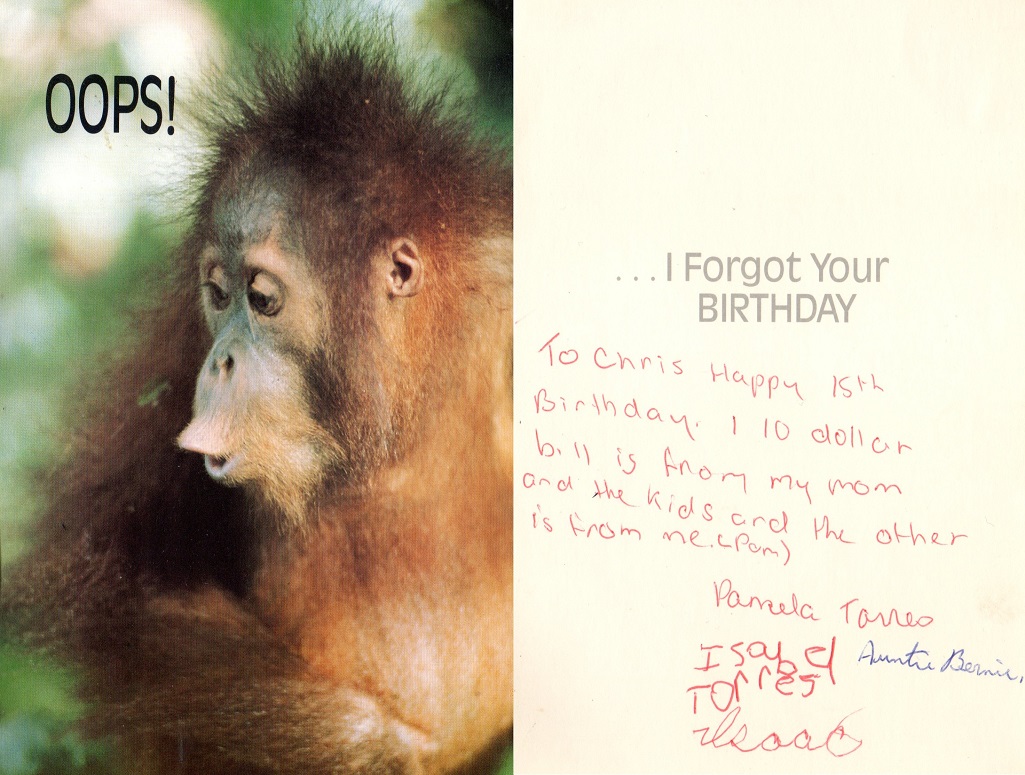 OOPS!
...I Forgot Your
BIRTHDAY
To Chris Happy 15th
Birthday. 1 10 dollar
bill is from my mom
and the kids and the other
is from me. (Pam)
Pamela Torres
Isabel
Torres
Auntie Bernie.
Isaac